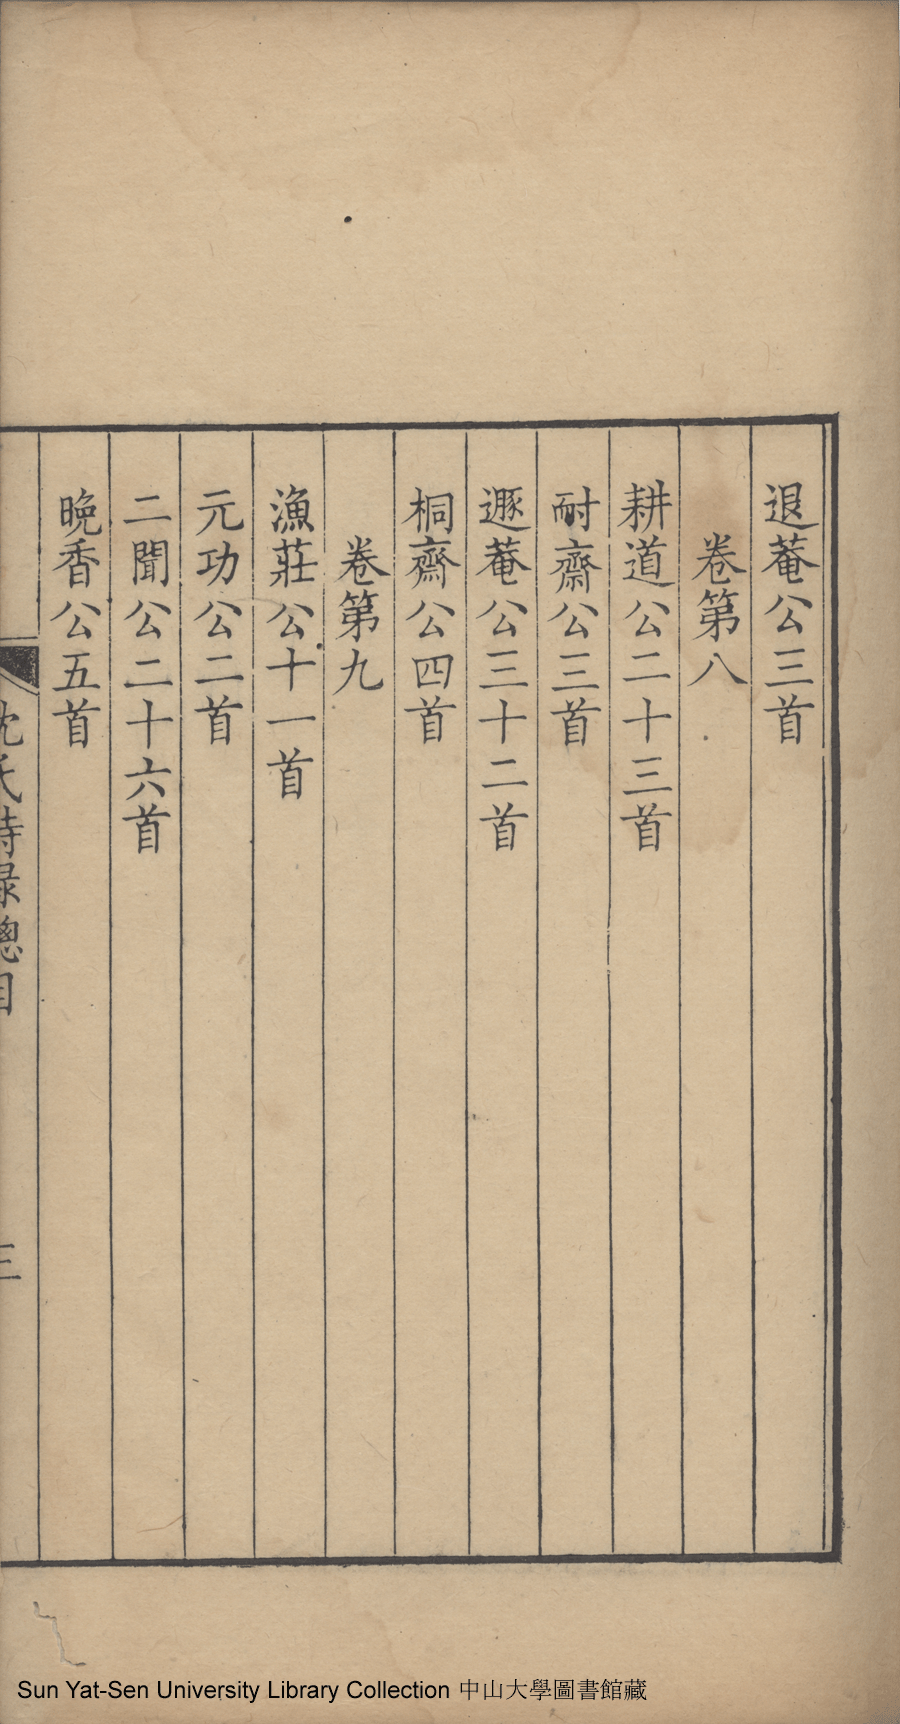 退菴公三首
卷第八
耕道公二十三首
耐齋公三首
遯菴公三十二首
桐齋公四首
卷第九
漁莊公十一首
元功公二首
二聞公二十六首
晚香公五首
沈氏詩録總目
三
Sun Yat-Sen University Library Collection 中山大學圖書館藏